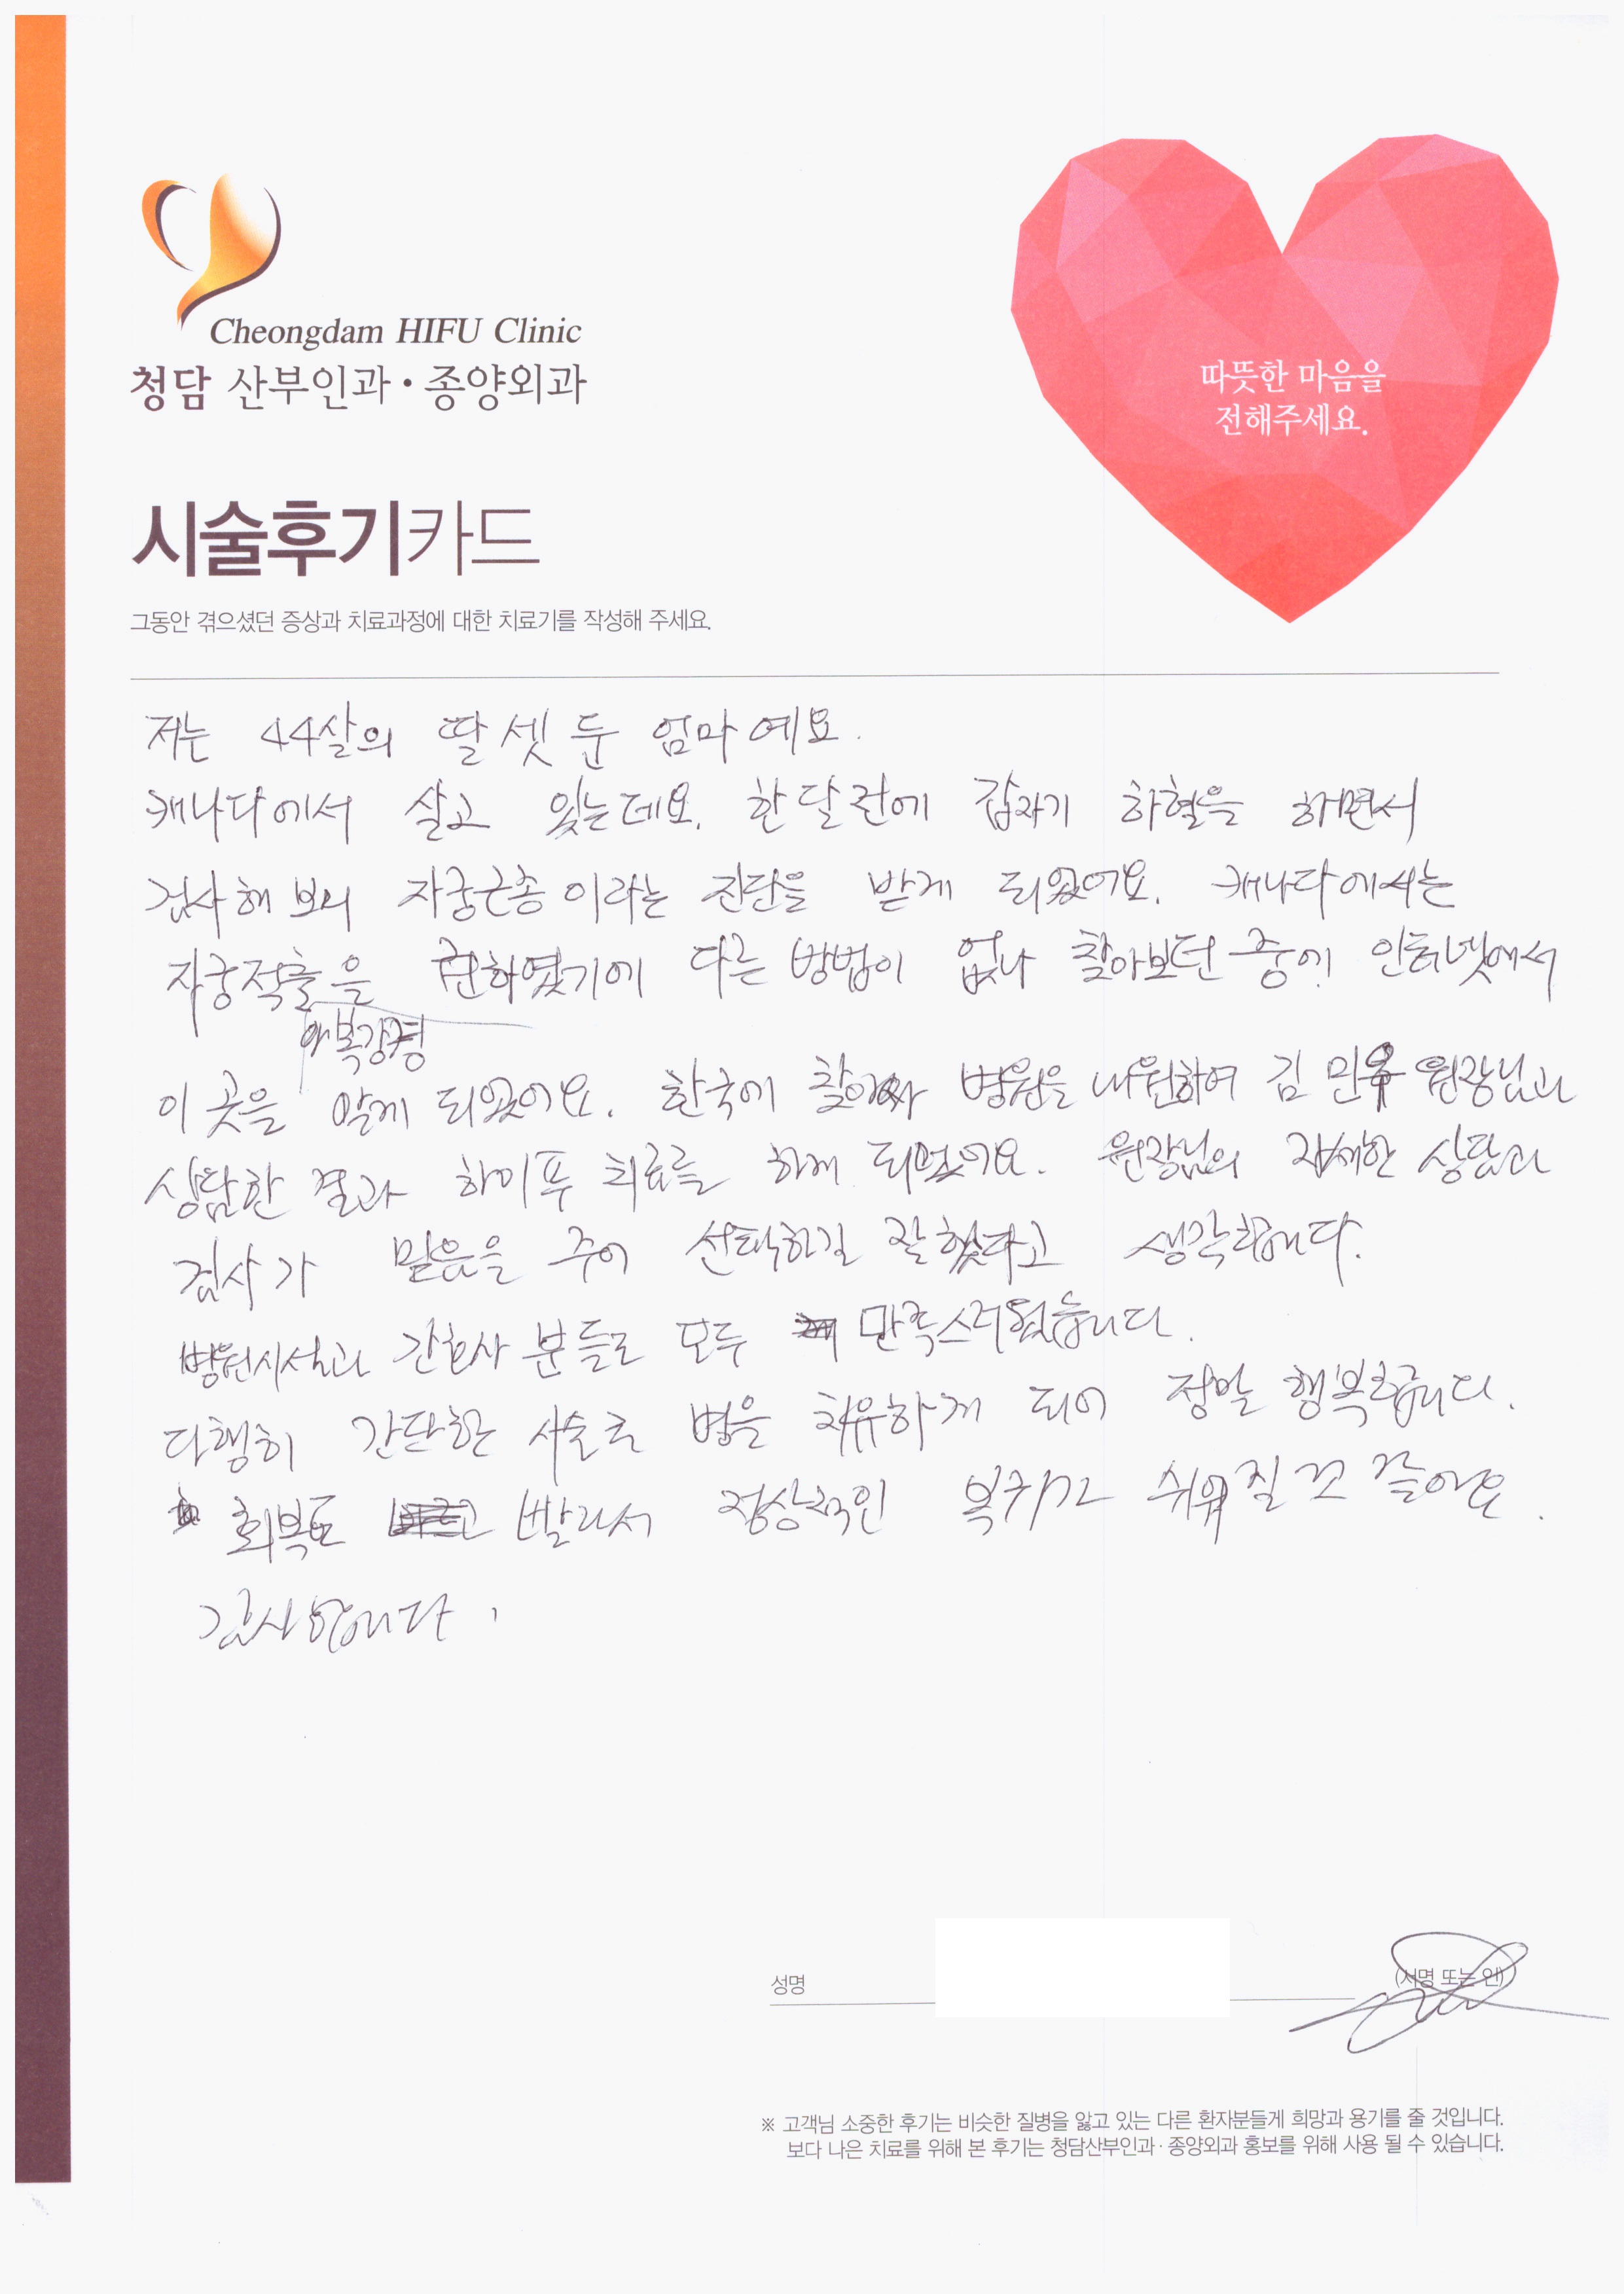 Cheongdam HIFU Clinic
청담 산부인과·종양외과
따뜻한 마음을
전해주세요.
시술후기카드
그동안 겪으셨던 증상과 치료과정에 대한 치료기를 작성해 주세요.
저는 44살의 딸 셋 둔 엄마예요.
캐나다에서 살고 있는데요. 한달전에 갑자기 하혈을 하면서
검사해 보니 자궁근종이라는 진단을 받게 되었어요. 캐나다에서는
자궁적출을 권하였기에 다른 방법이 없나 찾아보던 중에 인터넷에서
복강경
이 곳을 알게 되었어요. 한국에 찾아와 병원을 내원하여 김민우 원장님과
상담한 결과 하이푸 치료를 하게 되었어요. 원장님의 자세한 상담과
검사가 믿음을 주어 선택하길 잘 했다고 생각합니다.
병원시설과 간호사 분들도 모두 만족스러웠습니다.
다행히 간단한 시술로 병을 치유하게 되어 정말 행복합니다.
회복도 빨라서 정상적인 복귀가 쉬워질 것 같아요.
감사합니다.
성명
(서명 또는 인)
※ 고객님 소중한 후기는 비슷한 질병을 앓고 있는 다른 환자분들게 희망과 용기를 줄 것입니다.
보다 나은 치료를 위해 본 후기는 청담산부인과·종양외과 홍보를 위해 사용 될 수 있습니다.